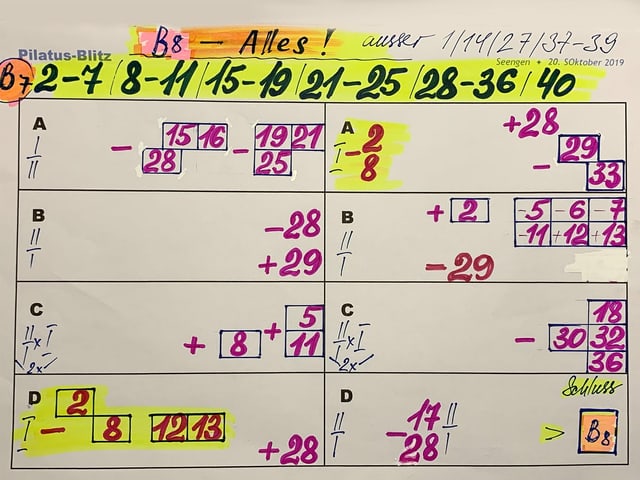 B8 – Alles! ausser 1/14/27/37-39
Pilatus-Blitz
Seengen • 20. SOktober 2019
B7 2-7 / 8-11 / 15-19 / 21-25 / 28-36 / 40
A
I
II
15 16 19 21
- 28 - 25
A
I
-2
8
+28
- 29
33
B
II
I
-28
+29
B
II
I
+ 2 -5 -6 -7
-11 +12 +13
-29
C
II x I
I II
2x
+ 8 + 5
11
C
II x I
I I
2x
18
- 30 32
36
D
I
2
- 8 12 13
+28
D
II
I
17 II
-28 I
Schluss
> B8